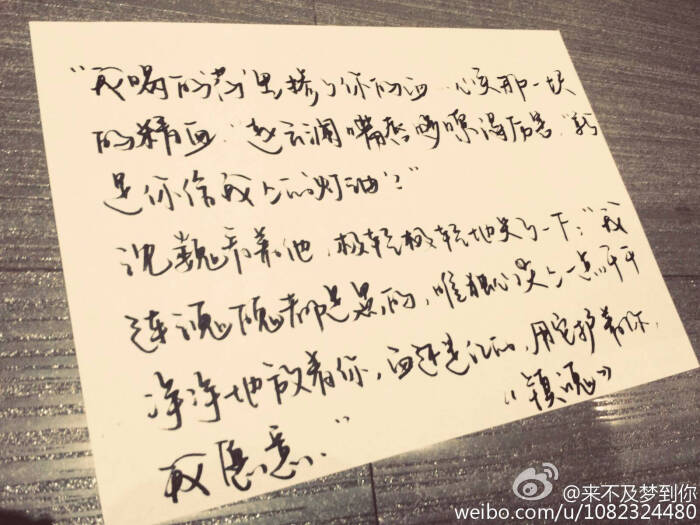 “我喝的药里掺了你的血，心头那一块
的精血，”赵云澜嘴唇哆嗦得厉害，“就
是你给我上的灯油？”
沈巍看着他，极轻极轻地笑了一下：“我
连魂魄都是黑的，唯独心尖上一点干干
净净地放着你，血还是红的，用它护着你，
我愿意。”
《镇魂》
@来不及梦到你
weibo.com/u/1082324480